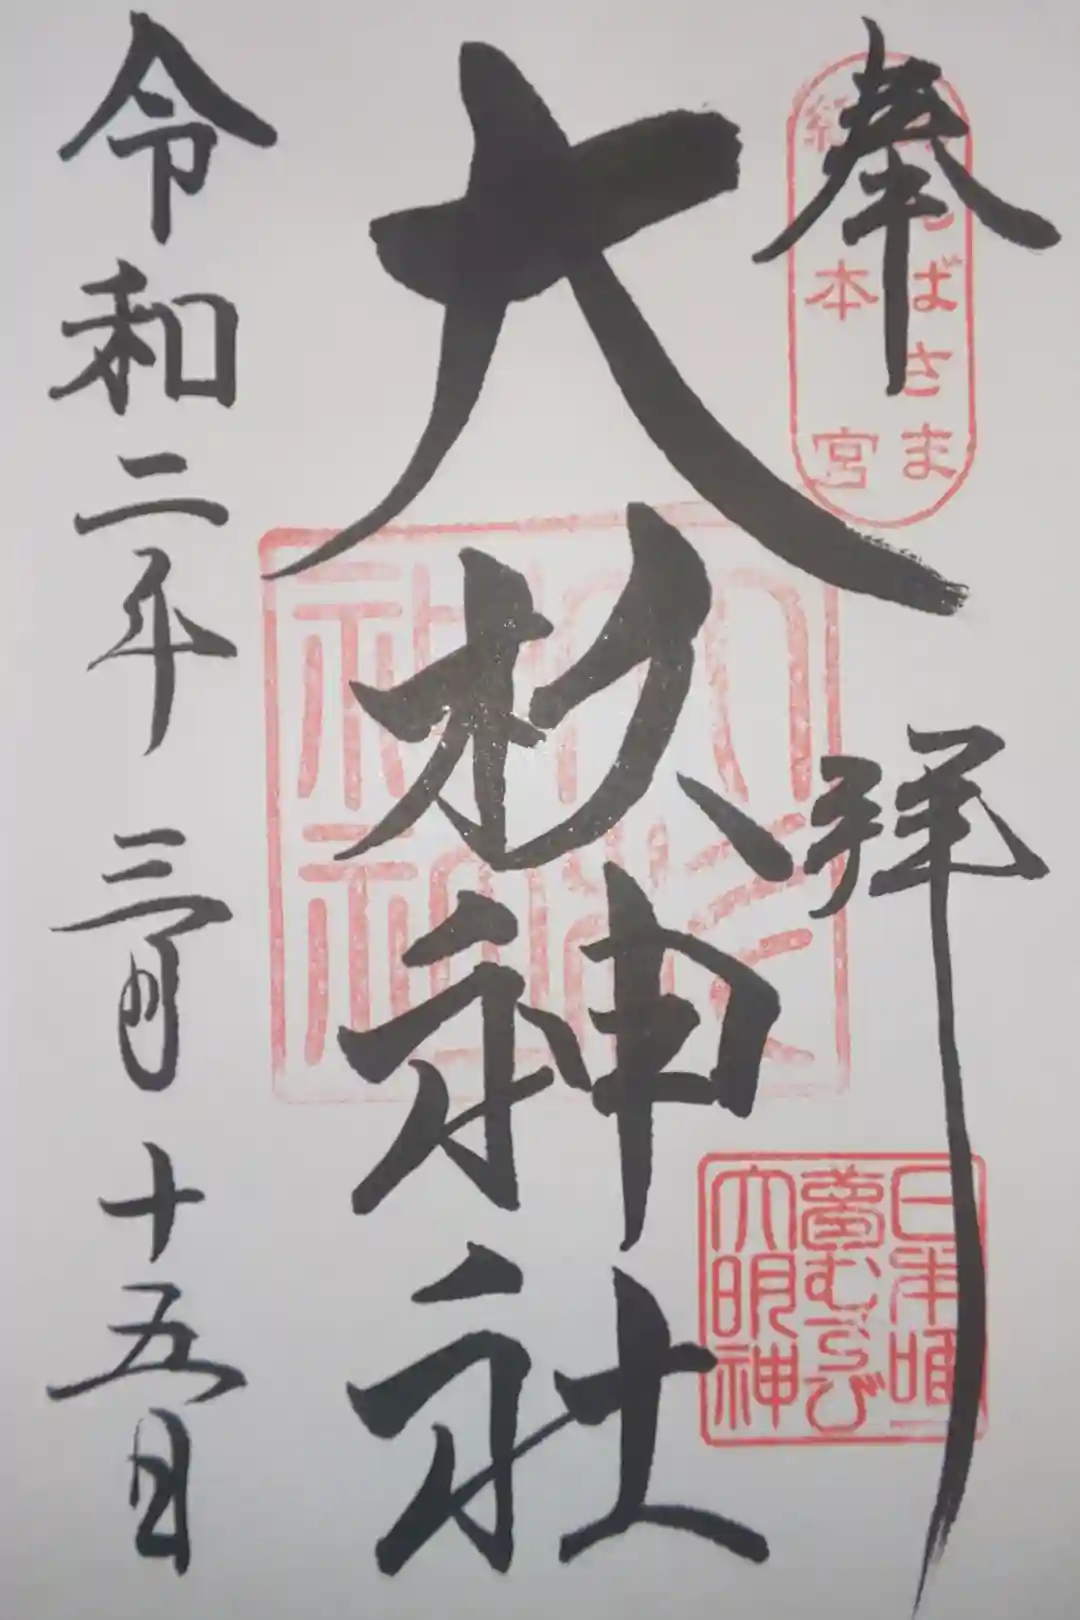 奉拝
あんばさま
総本宮
大杉神社
日本唯一
夢むすび
大明神
令和二年三月十五日